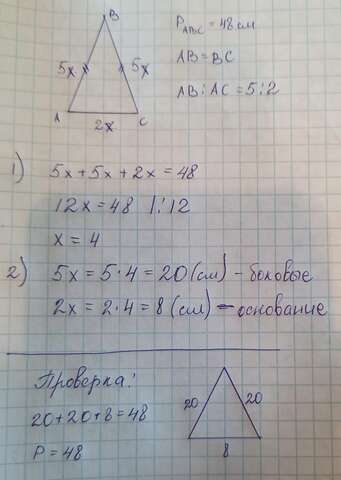 B
5x
5x
A
2x
C
P_ABC = 48 см
AB = BC
AB : AC = 5 : 2
1) 5x + 5x + 2x = 48
12x = 48 | : 12
x = 4
2) 5x = 5 · 4 = 20 (см) – боковые
2x = 2 · 4 = 8 (см) – основание
Проверка:
20 + 20 + 8 = 48
P = 48
20
20
8